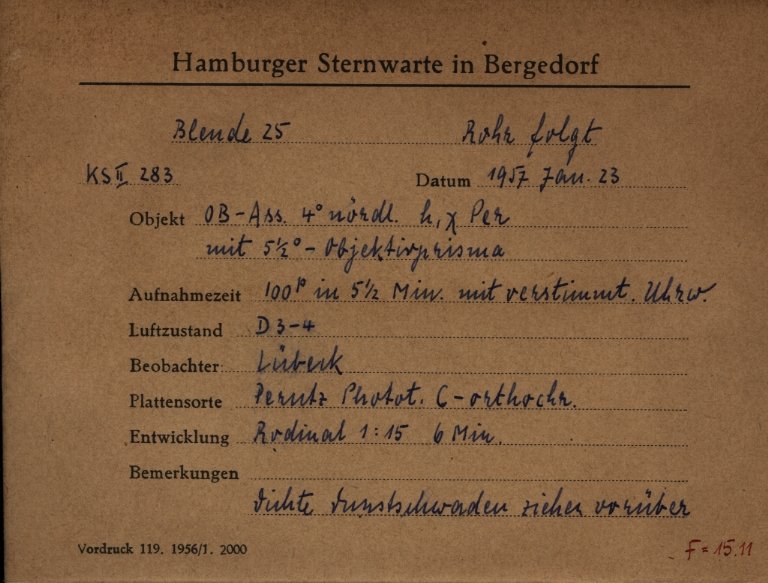 Hamburger Sternwarte in Bergedorf
Blende 25 Rohr folgt
KS II 283 Datum 1957 Jan. 23
Objekt OB-Ass. 4° nördl. h, χ Per
mit 5½° - Objektivprisma
Aufnahmezeit 100ᵖ in 5½ Min. mit verstimmt. Uhrw.
Luftzustand D 3-4
Beobachter Lübeck
Plattensorte Perutz Photot. C-orthochr.
Entwicklung Rodinal 1:15 6 Min.
Bemerkungen
dichte Dunstschwaden ziehen vorüber
Vordruck 119. 1956/1. 2000 F = 15.11